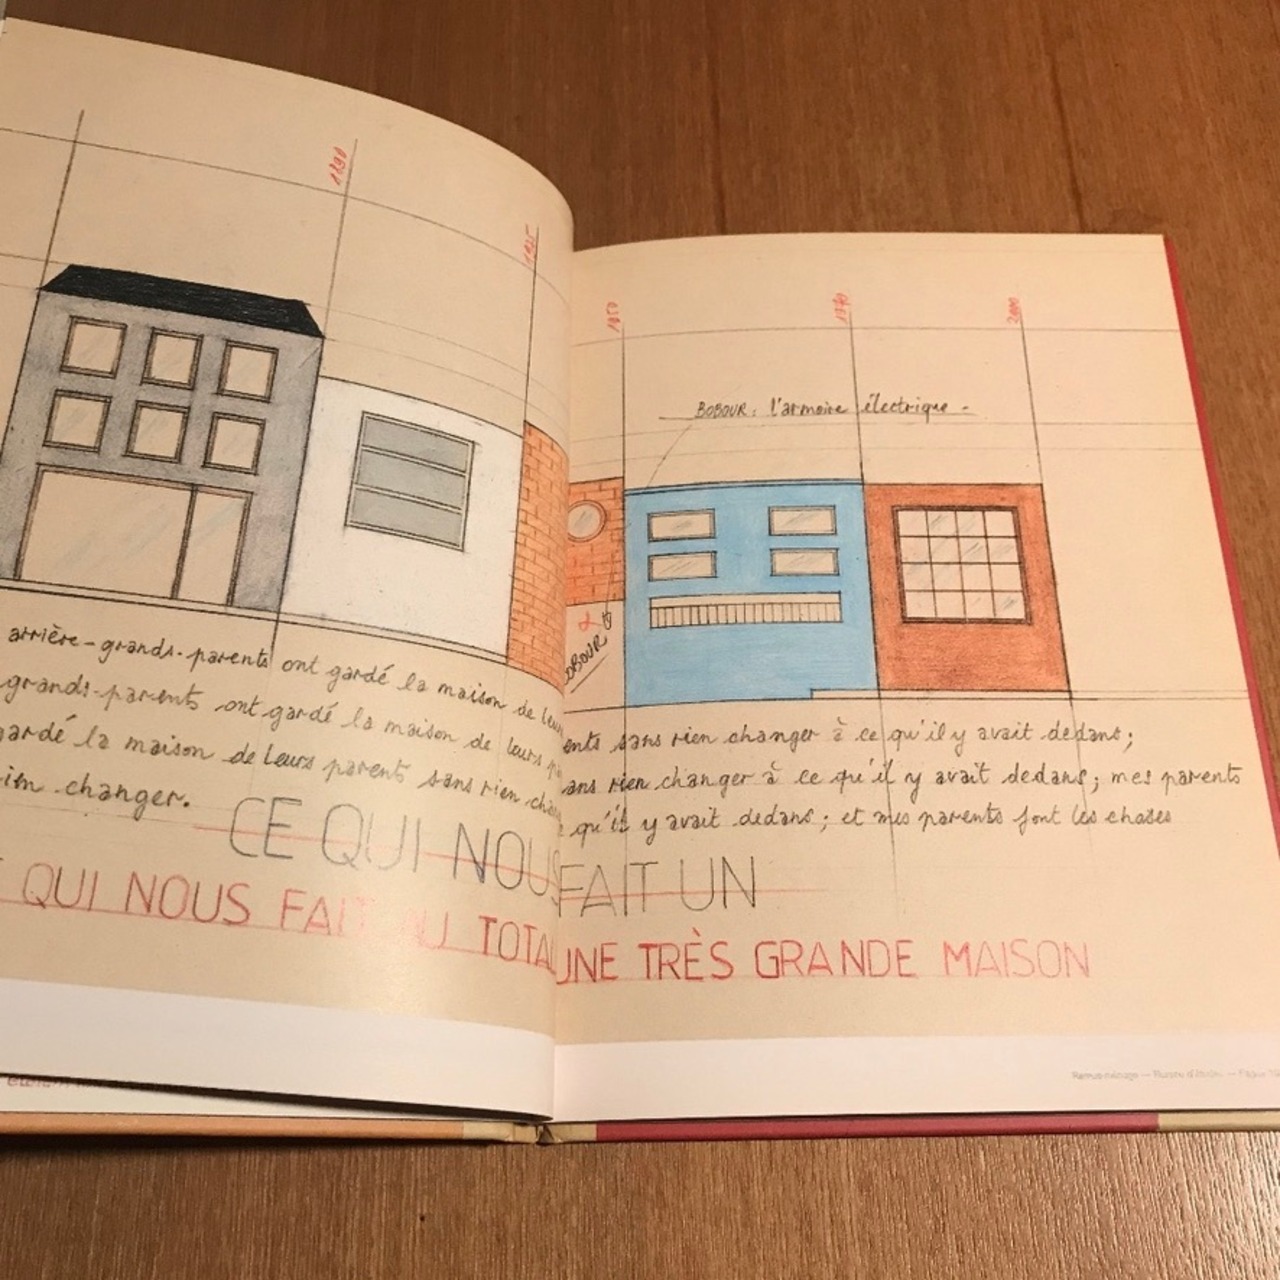 1890
1925
1950
1970
2000
BOBOUR : l'armoire électrique -
BOBOUR
arrière-grands-parents ont gardé la maison de leurs
ents sans rien changer à ce qu'il y avait dedans;
grands-parents ont gardé la maison de leurs
ans rien changer à ce qu'il y avait dedans; mes parents
gardé la maison de leurs parents sans rien
qu'il y avait dedans; et mes parents font les choses
changer.
CE QUI NOUS FAIT UN
QUI NOUS FAIT AU TOTAL UNE TRÈS GRANDE MAISON